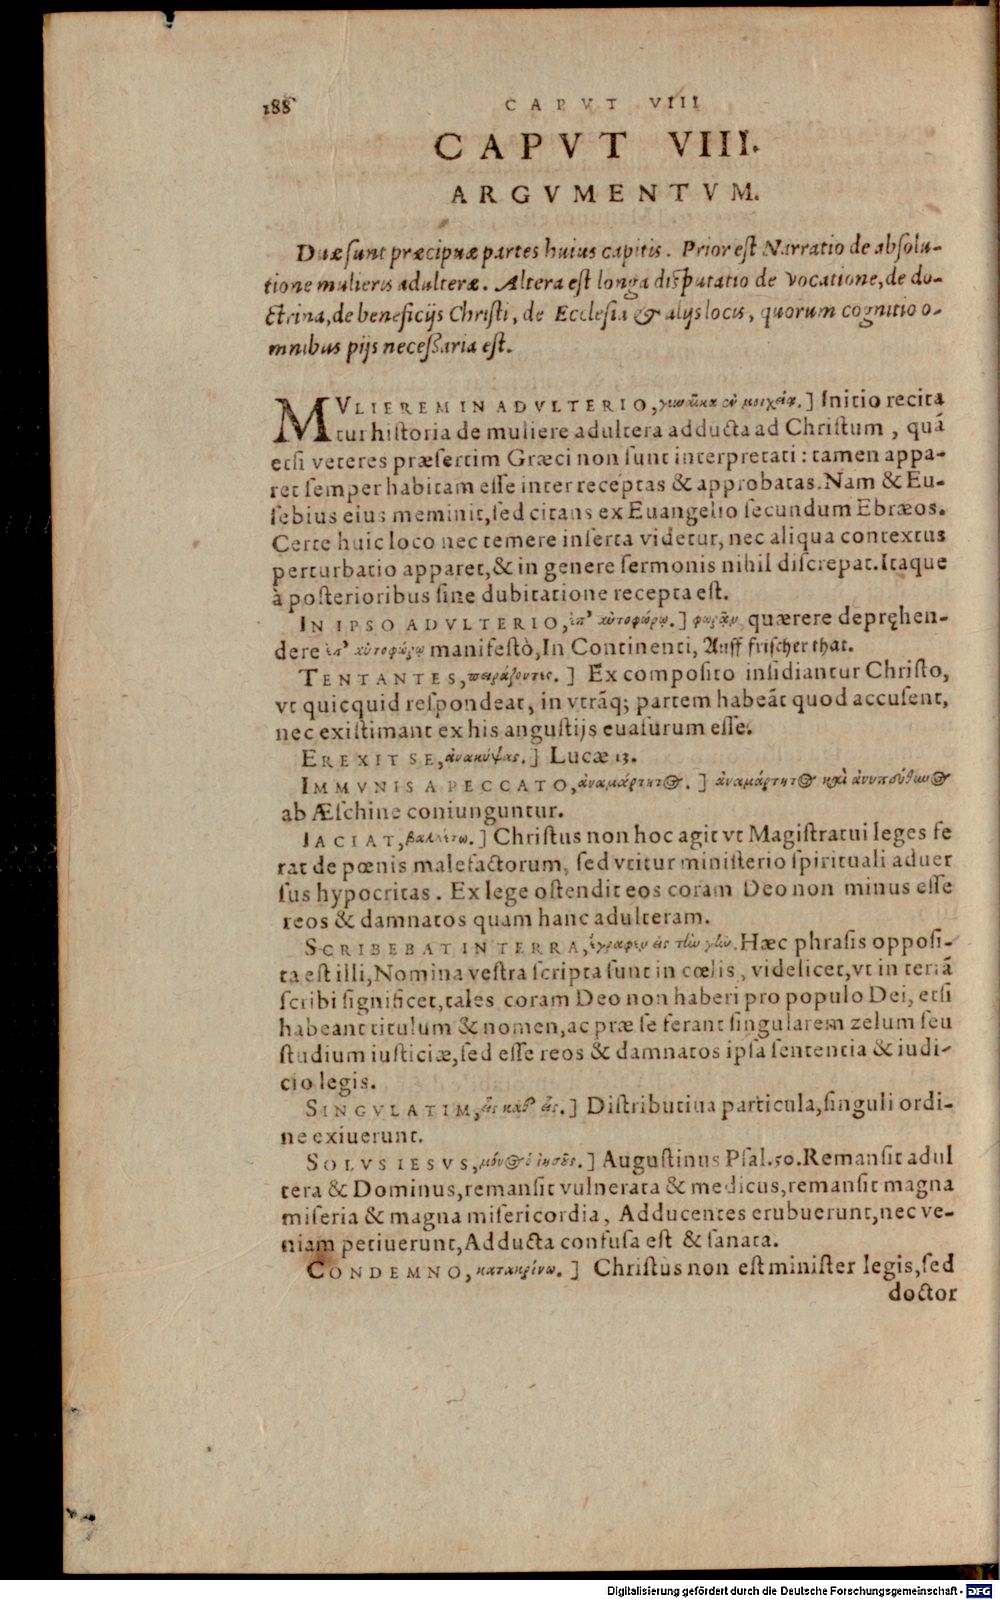 188 CAPVT VIII
CAPVT VIII.
ARGVMENTVM.
Duæ sunt præcipuæ partes huius capitis. Prior est Narratio de absolu-
tione mulieris adulteræ. Altera est longa disputatio de vocatione, de do-
ctrina, de beneficijs Christi, de Ecclesia & alijs locis, quorum cognitio o-
mnibus pijs necessaria est.
MVLIEREM IN ADVLTERIO, γυναῖκα ἐν μοιχείᾳ.] Initio recita
tur historia de muliere adultera adducta ad Christum, quā
etsi veteres præsertim Græci non sunt interpretati: tamen appa-
ret semper habitam esse inter receptas & approbatas. Nam & Eu-
sebius eius meminit, sed citans ex Euangelio secundum Ebræos.
Certe huic loco nec temere inserta videtur, nec aliqua contextus
perturbatio apparet, & in genere sermonis nihil discrepat. Itaque
à posterioribus sine dubitatione recepta est.
IN IPSO ADVLTERIO, ἐπ' αὐτοφώρῳ.] φωρᾶν, quærere depręhen-
dere ἐπ' αὐτοφώρῳ manifestò, In Continenti, Auff frischer that.
TENTANTES, πειράζοντες.] Ex composito insidiantur Christo,
vt quicquid respondeat, in vtrāq; partem habeāt quod accusent,
nec existimant ex his angustijs euasurum esse.
EREXIT SE, ἀνακύψας.] Lucæ 13.
IMMVNIS A PECCATO, ἀναμάρτητος.] ἀναμάρτητος καὶ ἀνυπεύθυνος
ab Æschine coniunguntur.
IACIAT, βαλέτω.] Christus non hoc agit vt Magistratui leges fe
rat de pœnis malefactorum, sed vtitur ministerio spirituali aduer
sus hypocritas. Ex lege ostendit eos coram Deo non minus esse
reos & damnatos quam hanc adulteram.
SCRIBEBAT IN TERRA, ἔγραφεν εἰς τὴν γῆν. Hæc phrasis opposi-
ta est illi, Nomina vestra scripta sunt in cœlis, videlicet, vt in terrā
scribi significet, tales coram Deo non haberi pro populo Dei, etsi
habeant titulum & nomen, ac præ se ferant singularem zelum seu
studium iusticiæ, sed esse reos & damnatos ipsa sententia & iudi-
cio legis.
SINGVLATIM, εἷς καθ' εἷς.] Distributiua particula, singuli ordi-
ne exiuerunt.
SOLVS IESVS, μόνος ὁ ἰησοῦς.] Augustinus Psal. 50. Remansit adul
tera & Dominus, remansit vulnerata & medicus, remansit magna
miseria & magna misericordia, Adducentes erubuerunt, nec ve-
niam petiuerunt, Adducta confusa est & sanata.
CONDEMNO, κατακρίνω.] Christus non est minister legis, sed
doctor
Digitalisierung gefördert durch die Deutsche Forschungsgemeinschaft - DFG